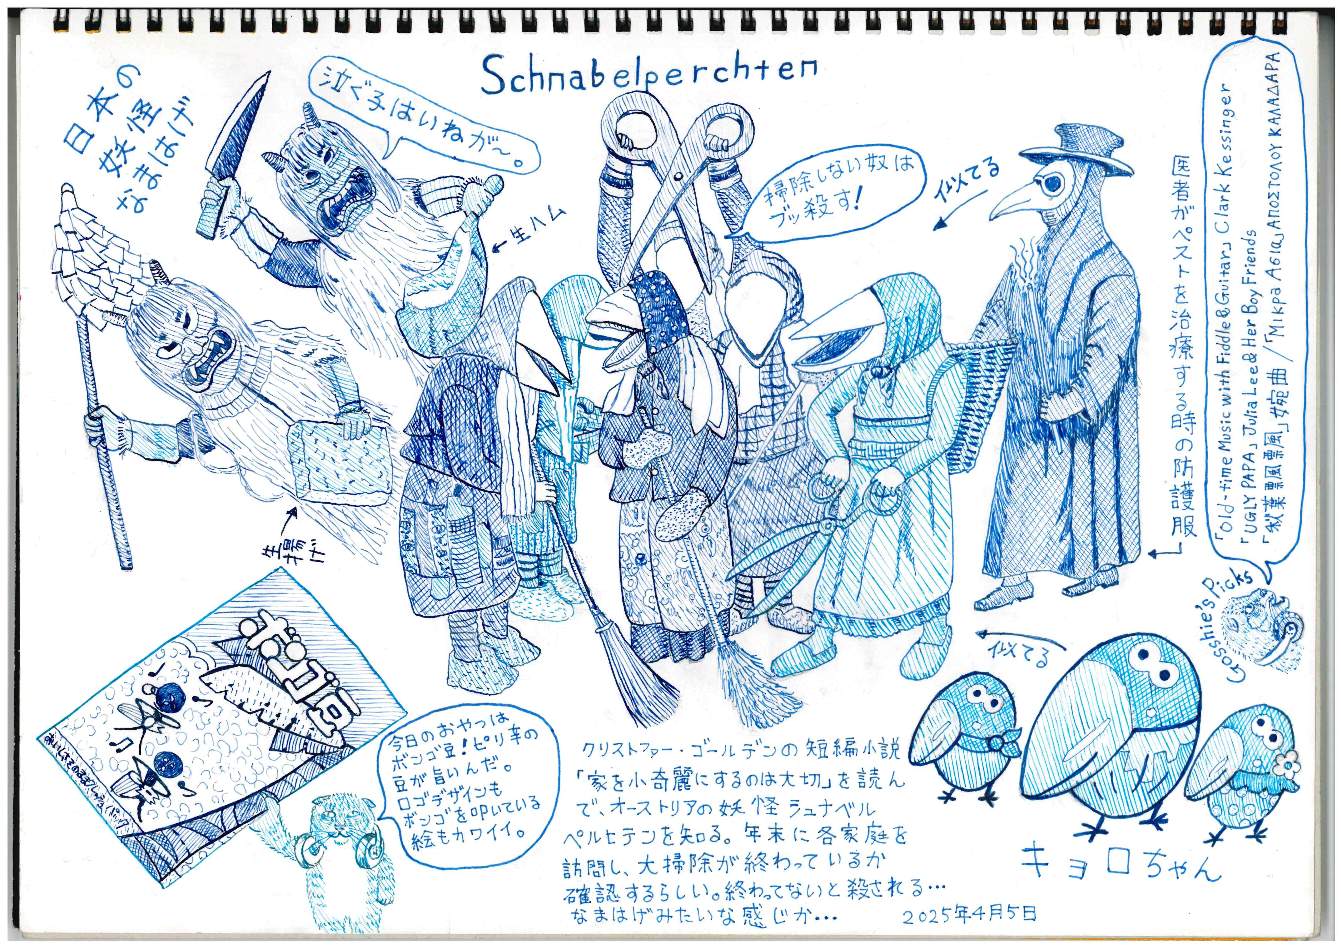 Schnabelperchten
日本の
妖怪
なまはげ
泣ぐ子はいねが〜。
←生ハム
掃除しない奴は
ブッ殺す!
似てる
医者がペストを治療する時の防護服
「Old-time Music with Fiddle&Guitar」Clark Kessinger
「UGLY PAPA」Julia Lee&Her Boy Friends
「秋葉飄風」婉曲/「Μικρα Ασια」ΑΠΟΣΤΟΛΟΥ ΚΑΛΔΑΡΑ
Gosshie's Picks
生揚げ
ボンゴ豆
今日のおやつは
ボンゴ豆!ピリ辛の
豆が旨いんだ。
ロゴデザインも
ボンゴを叩いている
絵もカワイイ。
クリストファー・ゴールデンの短編小説
「家を小奇麗にするのは大切」を読ん
で、オーストリアの妖怪シュナベル
ペルヒテンを知る。年末に各家庭を
訪問し、大掃除が終わっているか
確認するらしい。終わってないと殺される…
なまはげみたいな感じか…
2025年4月5日
似てる
キョロちゃん